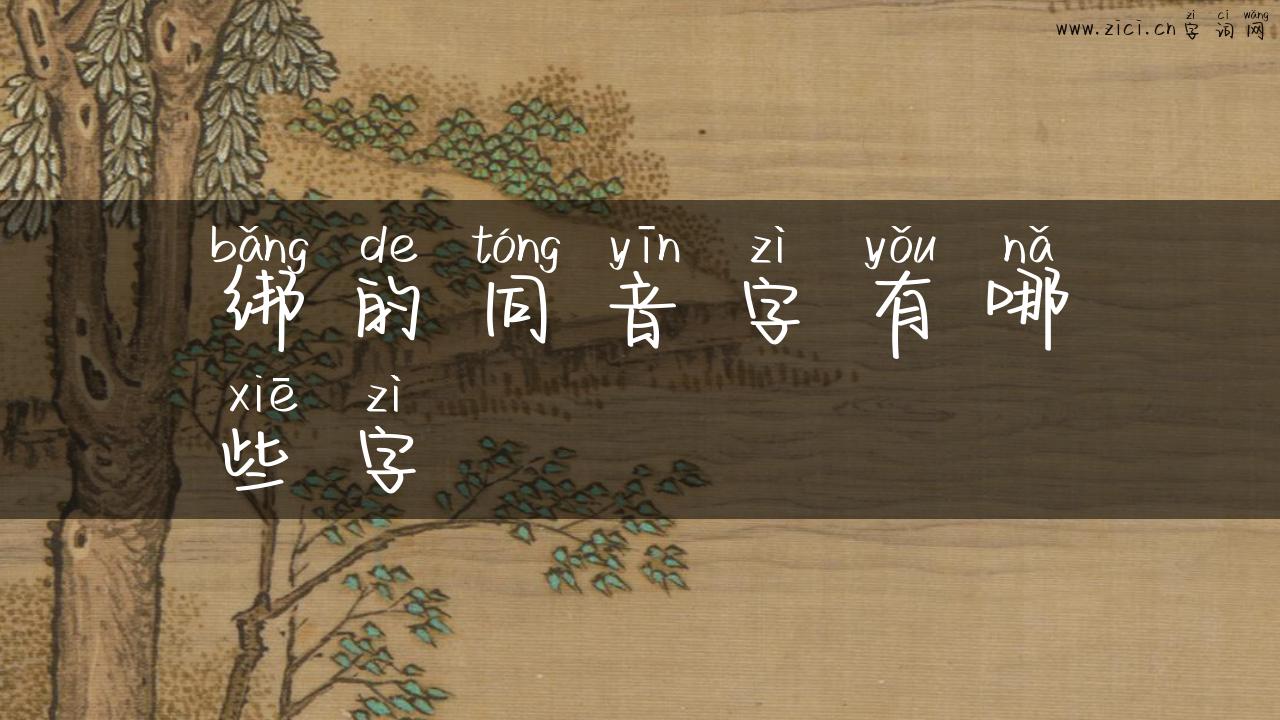 zì cí wǎng
www.zici.cn 字词网
bǎng de tóng yīn zì yǒu nǎ
绑的同音字有哪
xiē zì
些字